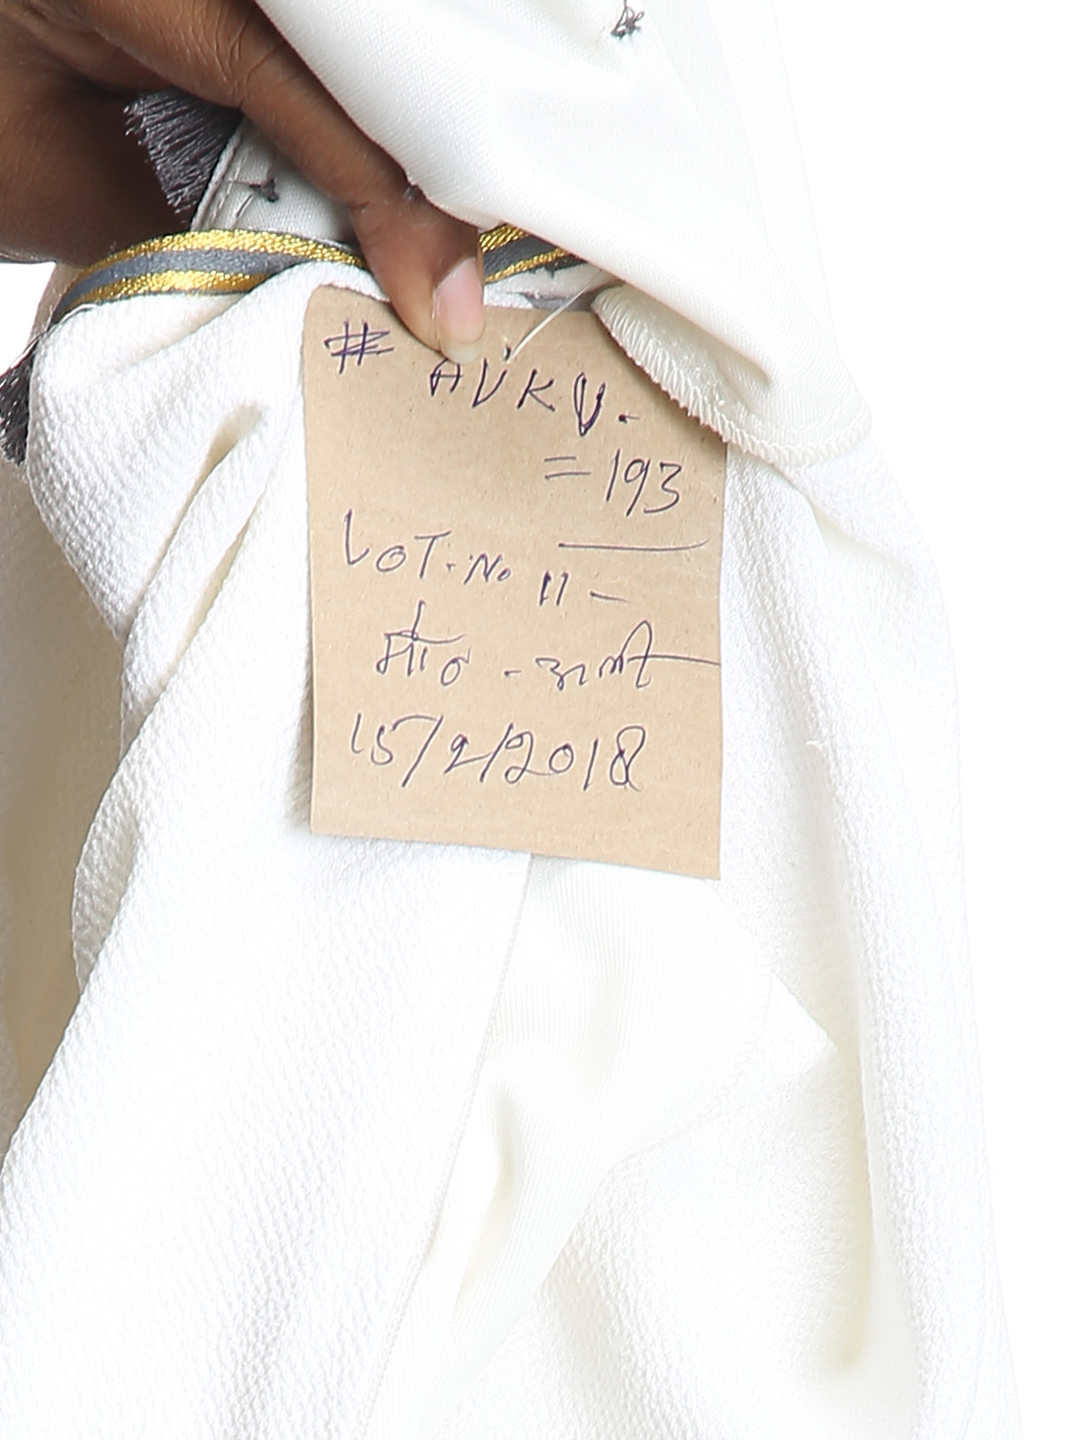 # AVKV.
= 193
LOT. No 11 -
15/2/2018